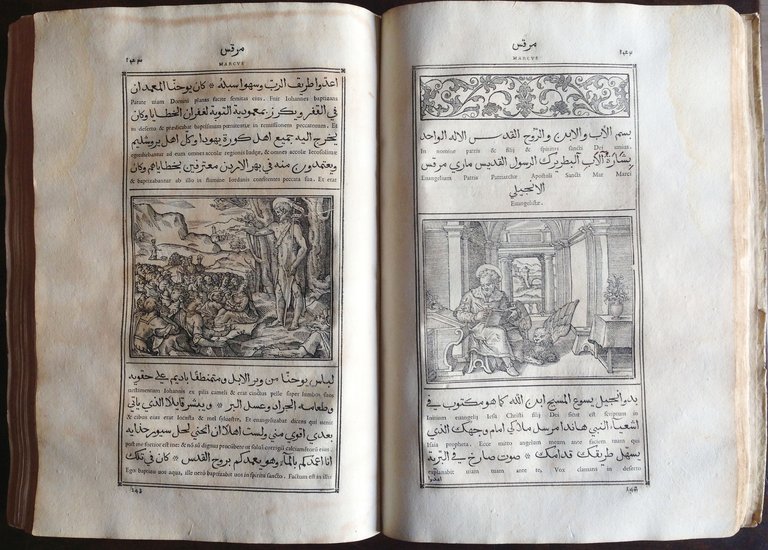 مرقس
MARCVS
بسم الاب والابن والروح القدس الاله الواحد
In nomine patris & filij & spiritus sancti Dei unius.
بشارة الاب البطريرك الرسول القديس ماري مرقس
Euangelium Patris Patriarchæ Apostoli Sancti Mar Marci
الانجيلي
Euangelistæ.
بدو انجيل يسوع المسيح ابن الله كما هو مكتوب في
Initium euangelij Iesu Christi filij Dei sicut est scriptum in
اشعيا النبي هاندا مرسل ملاكي امام وجهك الذي
Isaia propheta. Ecce mitto angelum meum ante faciem tuam qui
يسهل طريقك قدامك * صوت صارخ في البرية
explanabit uiam tuam ante te. Vox clamans in deserto
اعدوا
مرقس
MARCVS
اعدوا طريق الرب وسهلوا سبله * كان يوحنا المعمدان
Parate uiam Domini planas facite semitas eius. Fuit Iohannes baptizans
في القفر ويكرز بمعمودية التوبة لغفران الخطايا وكان
in deserto & prædicabat baptismum pœnitentiæ in remissionem peccatorum. Et
يخرج اليه جميع اهل كورة يهودا وكل اهل يروشليم
egrediebantur ad eum omnes accolæ regionis Iudææ, & omnes accolæ Ierosolimæ
ويعتمدون منه في نهر الاردن معترفين بخطاياهم وكان
& baptizabantur ab illo in flumine Iordanis confitentes peccata sua. Et erat
لباس يوحنا من وبر الابل ومتمنطقا باديم علي حقويه
uestimentum Iohannis ex pilis cameli & erat cinctus pelle super lumbos suos
وطعامه الجراد وعسل البر * ويبشر قايلا الذي ياتي
& cibus eius erat locusta & mel siluestre. Et euangelizabat dicens qui uenit
بعدي اقوي مني ولست اهلا ان انحني لحل سيور حذايه
post me fortior est me: & nõ sũ dignus procũbere ut soluã corrigiã calciamẽtorũ eius.
انا اعمدكم بالماء وهو يعمدكم بروح القدس * كان في تلك
Ego baptizo uos aqua, ille uero baptizabit uos in spiritu sancto. Factum est in illis